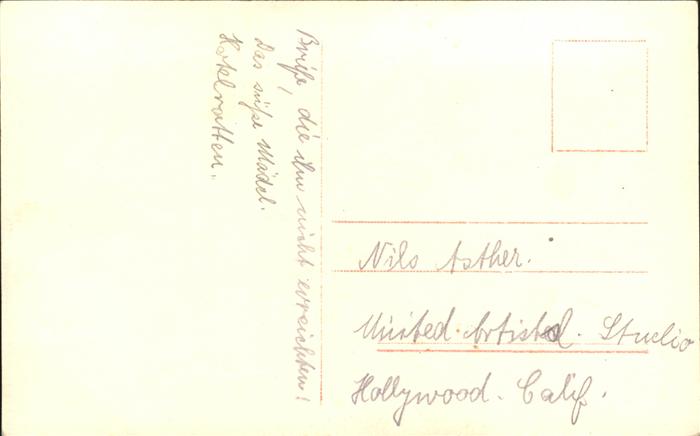 Briefe, die ihn nicht erreichten!
Das süße Mädel.
Hotelratten.
Nils Asther.
United Artisted. Studio
Hollywood. Calif.